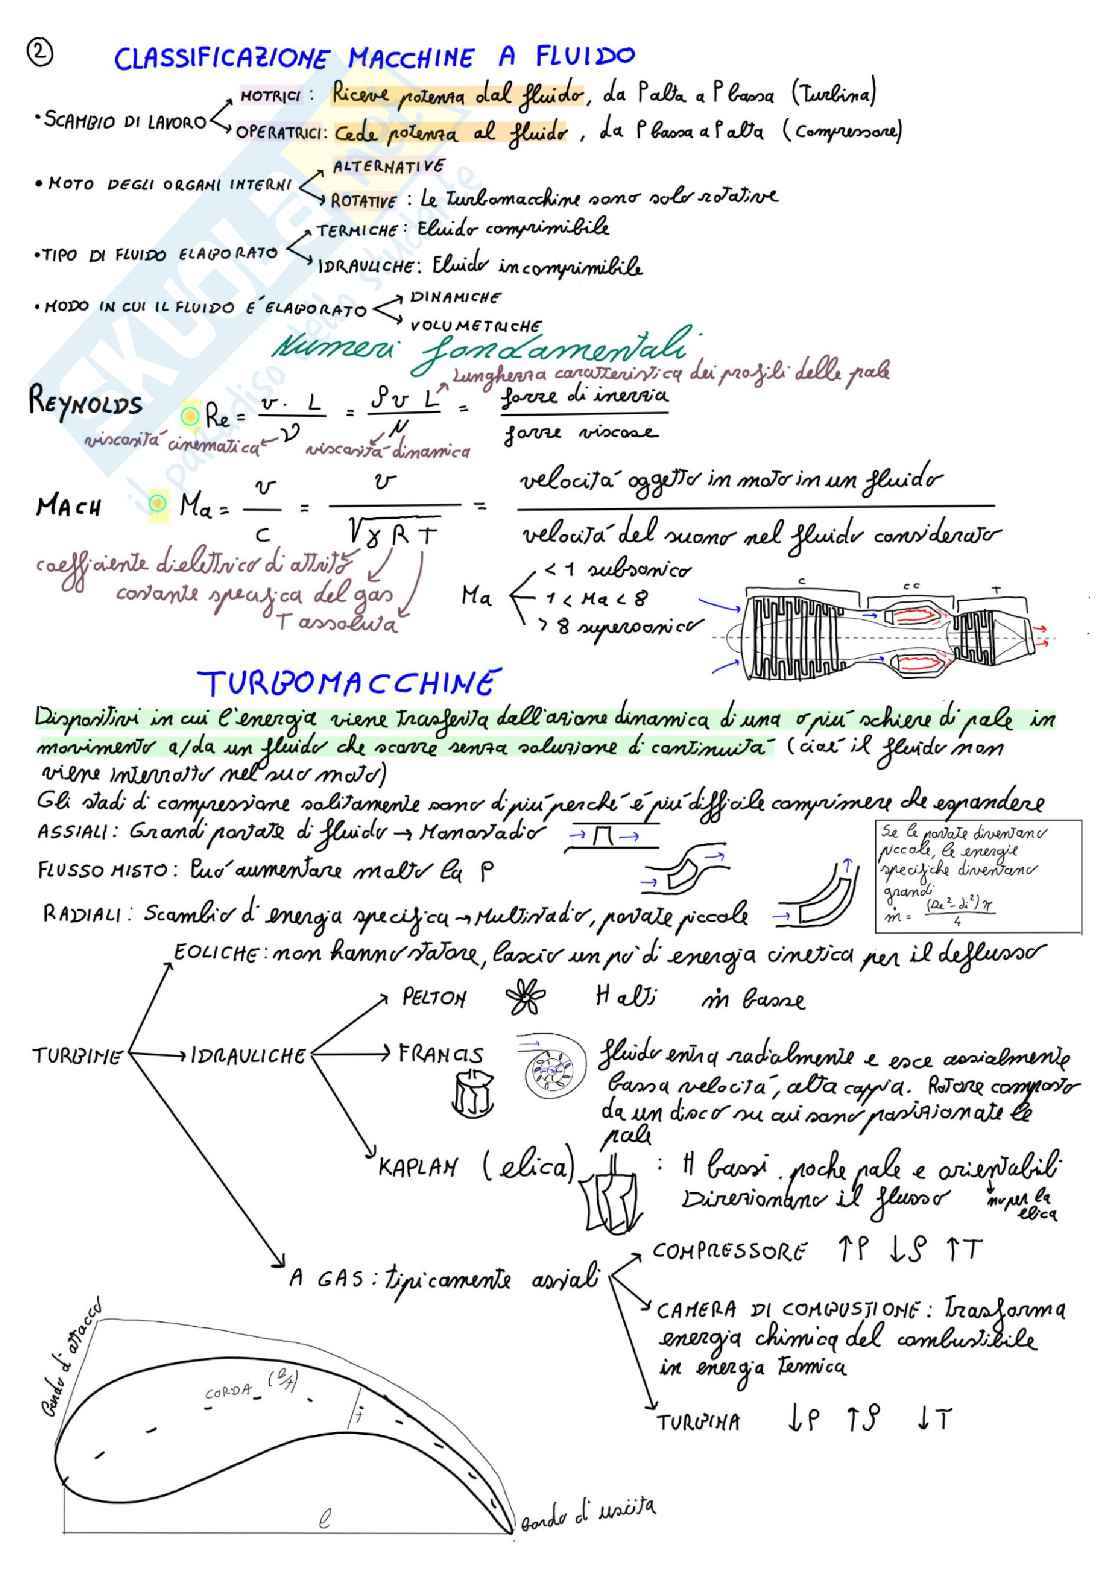 2
CLASSIFICAZIONE MACCHINE A FLUIDO
• SCAMBIO DI LAVORO
MOTRICI : Riceve potenza dal fluido, da P alta a P bassa (Turbina)
OPERATRICI: Cede potenza al fluido , da P bassa a P alta (Compressore)
• MOTO DEGLI ORGANI INTERNI
ALTERNATIVE
ROTATIVE : Le turbomacchine sono solo rotative
• TIPO DI FLUIDO ELABORATO
TERMICHE: Fluido comprimibile
IDRAULICHE: Fluido incomprimibile
• MODO IN CUI IL FLUIDO E' ELABORATO
DINAMICHE
VOLUMETRICHE
Numeri fondamentali
Lunghezza caratteristica dei profili delle pale
REYNOLDS Re = v · L / ν = ρ v L / μ = forze di inerzia / forze viscose
viscosità cinematica viscosità dinamica
MACH Ma = v / c = v / √γ R T = velocità oggetto in moto in un fluido / velocità del suono nel fluido considerato
coefficiente dielettrico di attrito
costante specifica del gas
T assoluta
Ma
< 1 subsonico
1 < Ma < 8
> 8 supersonico
C CC T
TURBOMACCHINE
Dispositivi in cui l'energia viene trasferita dall'azione dinamica di una o più schiere di pale in
movimento a/da un fluido che scorre senza soluzione di continuità (cioè il fluido non
viene interrotto nel suo moto)
Gli stadi di compressione solitamente sono di più perché è più difficile comprimere che espandere
ASSIALI: Grandi portate di fluido → Monostadio
FLUSSO MISTO: Può aumentare molto la P
RADIALI: Scambio di energia specifica → Multistadio, portate piccole
Se le portate diventano
piccole, le energie
specifiche diventano
grandi
ṁ = (De² - di²) π / 4
TURBINE
EOLICHE: non hanno statore, lascio un po' di energia cinetica per il deflusso
IDRAULICHE
PELTON H alti ṁ basse
FRANCIS fluido entra radialmente e esce assialmente
bassa velocità, alta coppia. Rotore composto
da un disco su cui sono posizionate le
pale
KAPLAN (elica) : H bassi. poche pale e orientabili
Direzionano il flusso
no per la
elica
A GAS: tipicamente assiali
COMPRESSORE ↑P ↓ρ ↑T
CAMERA DI COMBUSTIONE: Trasforma
energia chimica del combustibile
in energia termica
TURBINA ↓P ↑ρ ↓T
Bordo d'attacco
CORDA
l
Bordo di uscita
SKUOLA.net
il paradiso dello studente